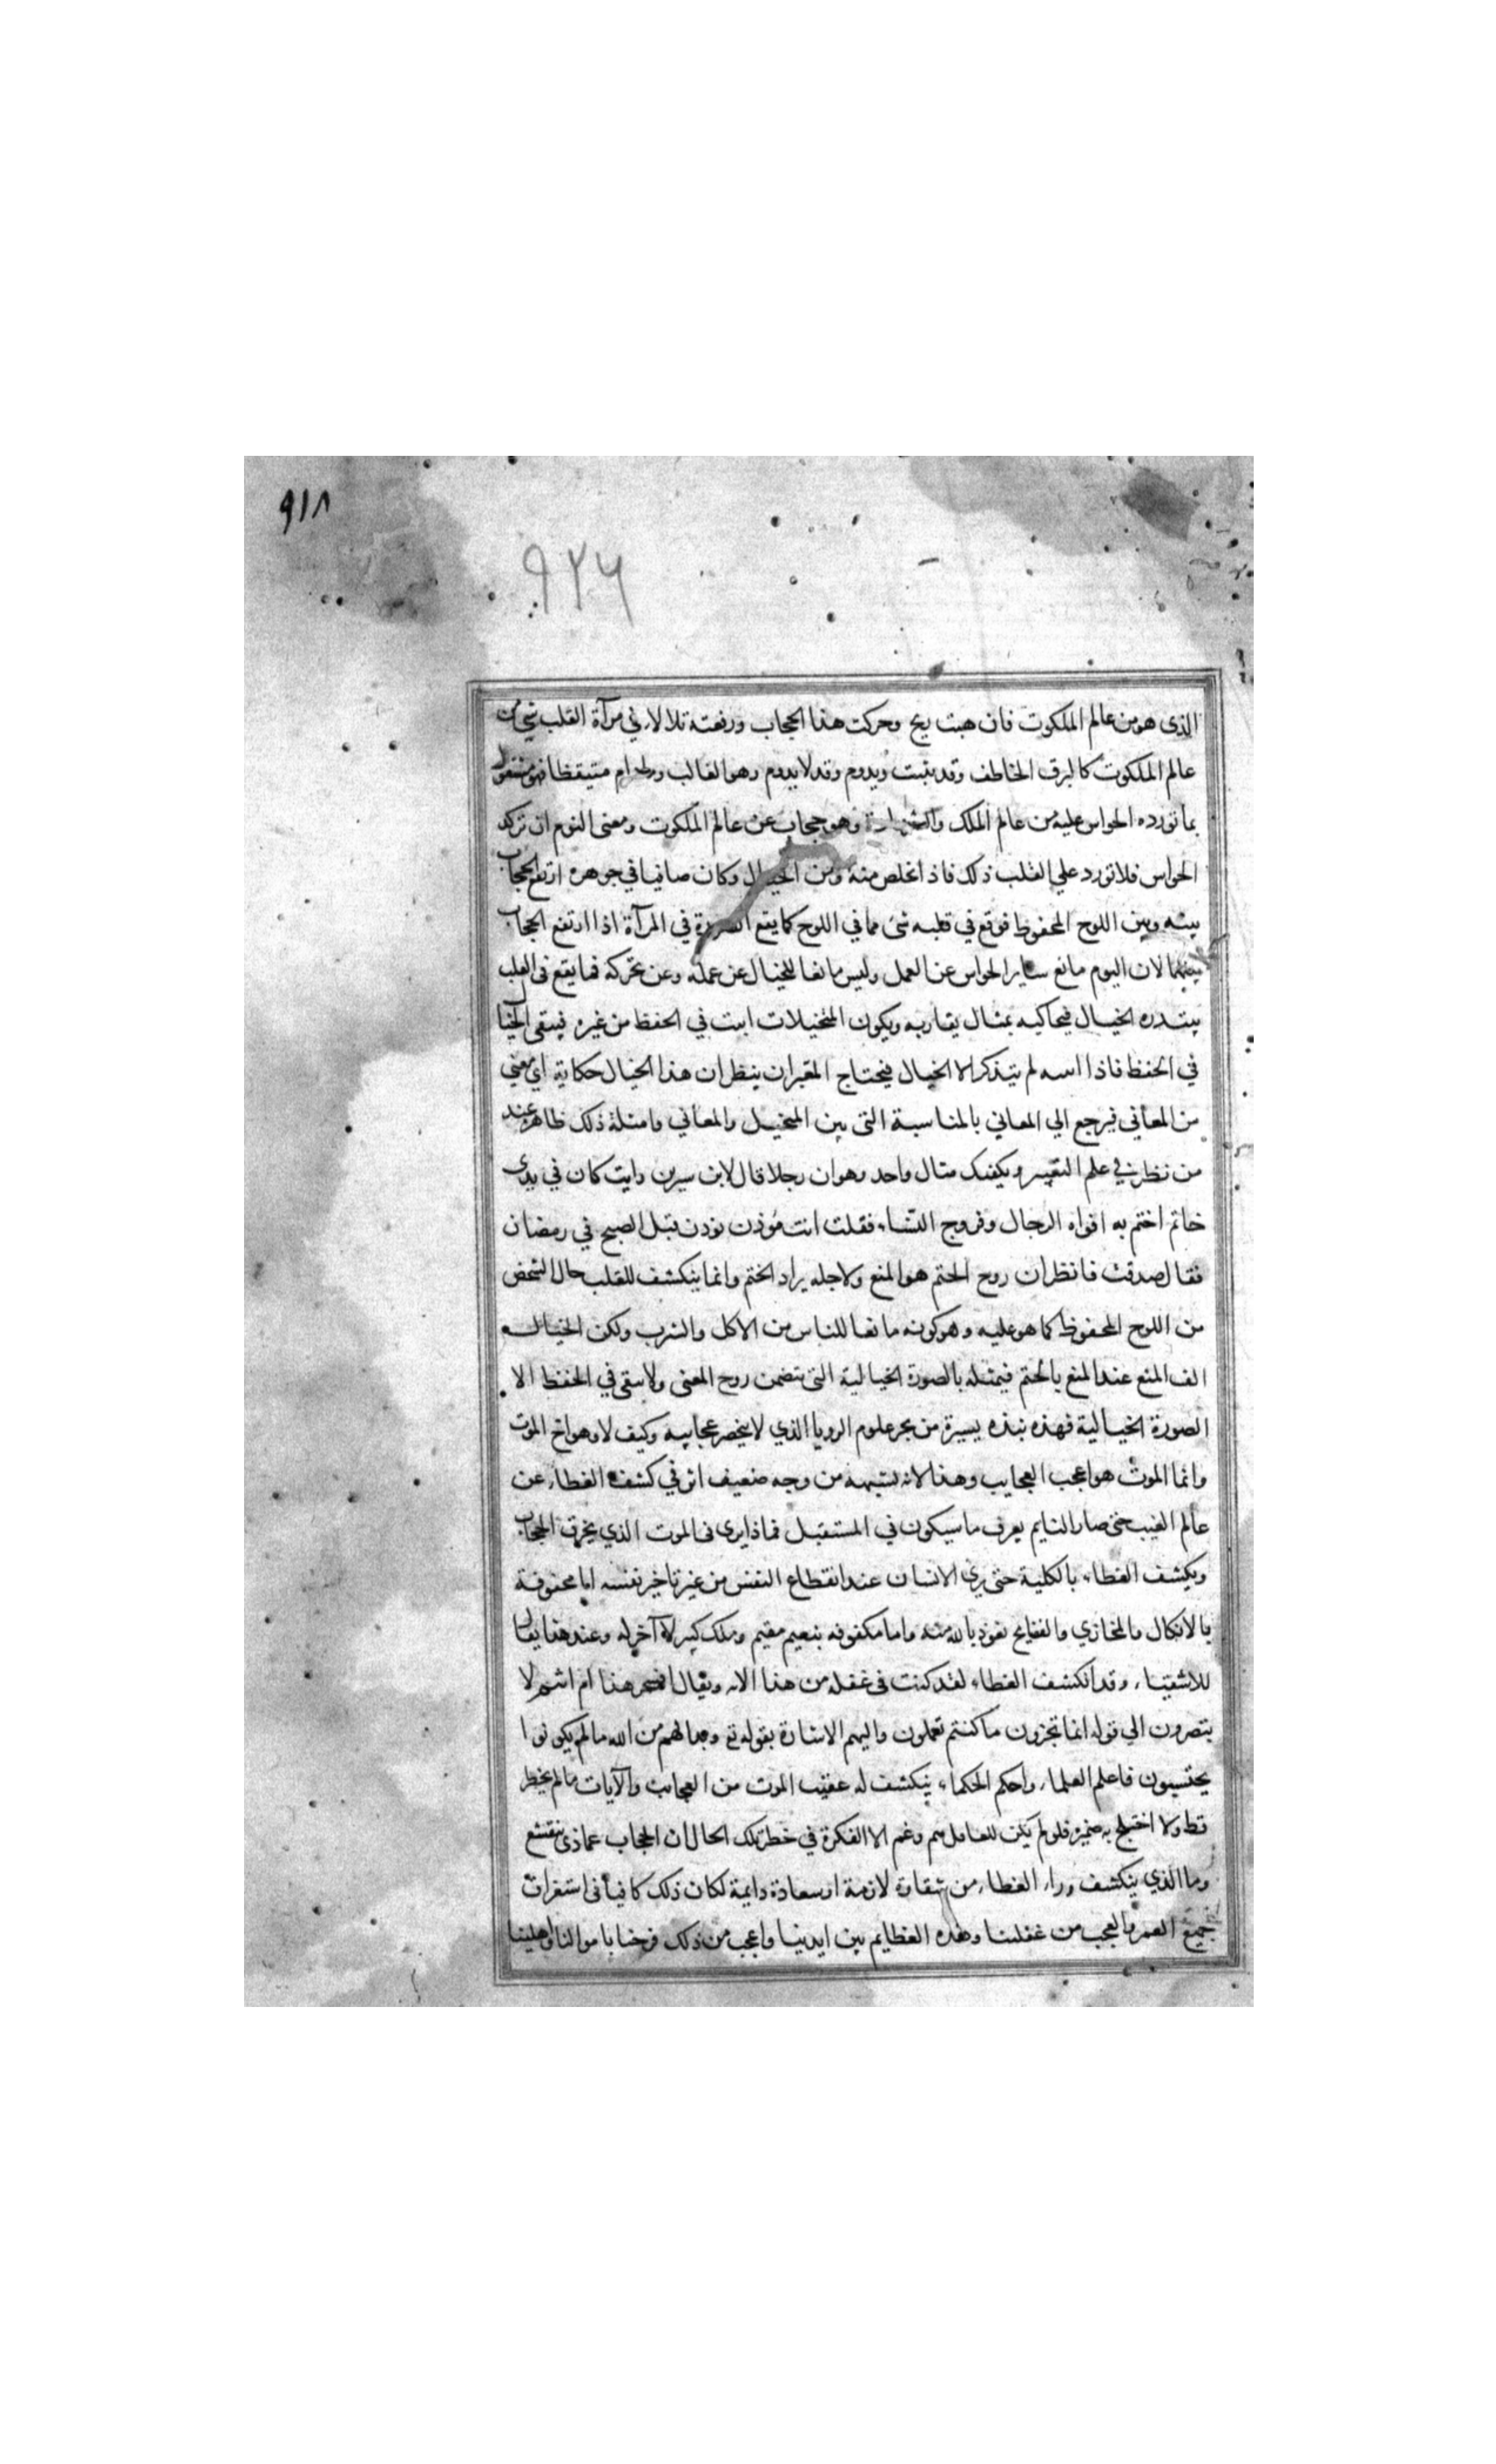 ٩١٨
٩٢٦
الذي هو من عالم الملكوت فان هبت ريح وحركت هذا الحجاب ورفعته تلالاء في مرآة القلب شي من
عالم الملكوت كالبرق الخاطف وقد يثبت ويدوم وقد لا يدوم وهو الغالب وما دام متيقظا فهو مشغول
بما تورده الحواس عليه من عالم الملك والشهادة وهو حجاب عن عالم الملكوت ومعنى النوم ان تركد
الحواس فلا تورد علي القلب ذلك فاذا تخلص منه ومن الخيال وكان صافيا في جوهره ارتفع الحجاب
بينه وبين اللوح المحفوظ فوقع في قلبه شئ مما في اللوح كما يقع الصورة في المرآة اذا ارتفع الحجاب
بينهما لان اليوم مانع ساير الحواس عن العمل وليس مانعا للخيال عن عمله وعن تحركه فما يقع في القلب
يبتدره الخيال فيحاكيه بمثال يقاربه ويكون المتخيلات اثبت في الحفظ من غيره فيبقى الخيا
في الحفظ فاذا اسه لم يتذكر الا الخيال فيحتاج المعبر ان ينظر ان هذا الخيال حكاية اي معني
من المعاني فيرجع الي المعاني بالمناسبة التي بين المتخيل والمعاني وامثلة ذلك ظاهر عند
من نظر في علم التعبير ويكفيك مثال واحد وهو ان رجلا قال لابن سيرين رايت كان في يدي
خاتم اختم به افواه الرجال وفروج النساء فقلت انت مؤذن توذن قبل الصبح في رمضان
فقال صدقت فانظر ان روح الختم هو المنع ولاجله يراد الختم وانما ينكشف للقلب حال الشخص
من اللوح المحفوظ كما هو عليه وهو كونه مانعا للناس من الاكل والشرب ولكن الخيال
الف المنع عند المنع بالختم فيمثله بالصورة الخيالية التي تتضمن روح المعنى ولا يبقى في الحفظ الا
الصورة الخيالية فهذه نبذه يسيرة من بحر علوم الرويا الذي لا ينحصر عجايبه وكيف لا وهو اخ الموت
وانما الموت هو اعجب العجايب وهذا لانه يشبهه من وجه ضعيف اثر في كشف الغطاء عن
عالم الغيب حتى صار النايم يعرف ما سيكون في المستقبل فما ذا يرى في الموت الذي يخرق الحجاب
ويكشف الغطاء بالكلية حتى يري الانسان عند انقطاع النفس من غير تاخير نفسه اما محفوفة
بالانكال والمخازي والفضايح نعوذ بالله منه واما مكفوفه بنعيم مقيم وملك كبير لا آخر له وعند هذا يقال
للاشقيا وقد انكشف الغطاء لقد كنت في غفله من هذا الاية ويقال افسحر هذا ام انتم لا
تبصرون الي قوله انما تجزون ما كنتم تعملون واليهم الاشارة بقوله تع وبدا لهم من الله ما لم يكونوا
يحتسبون فاعلم العلماء واحكم الحكماء ينكشف له عقيب الموت من العجائب والآيات ما لم يخطر
قط ولا اختلج به ضميره فلو لم يكن للعاقل هم وغم الا الفكرة في خطر تلك الحال ان الحجاب عماذى ينقشع
وما الذي ينكشف وراء الغطاء من شقاوة لازمة او سعادة دايمة لكان ذلك كافيا في استغراق
جميع العمر والعجب من غفلتنا وهذه العظايم بين ايدينا واعجب من ذلك فرحنا باموالنا واهلينا